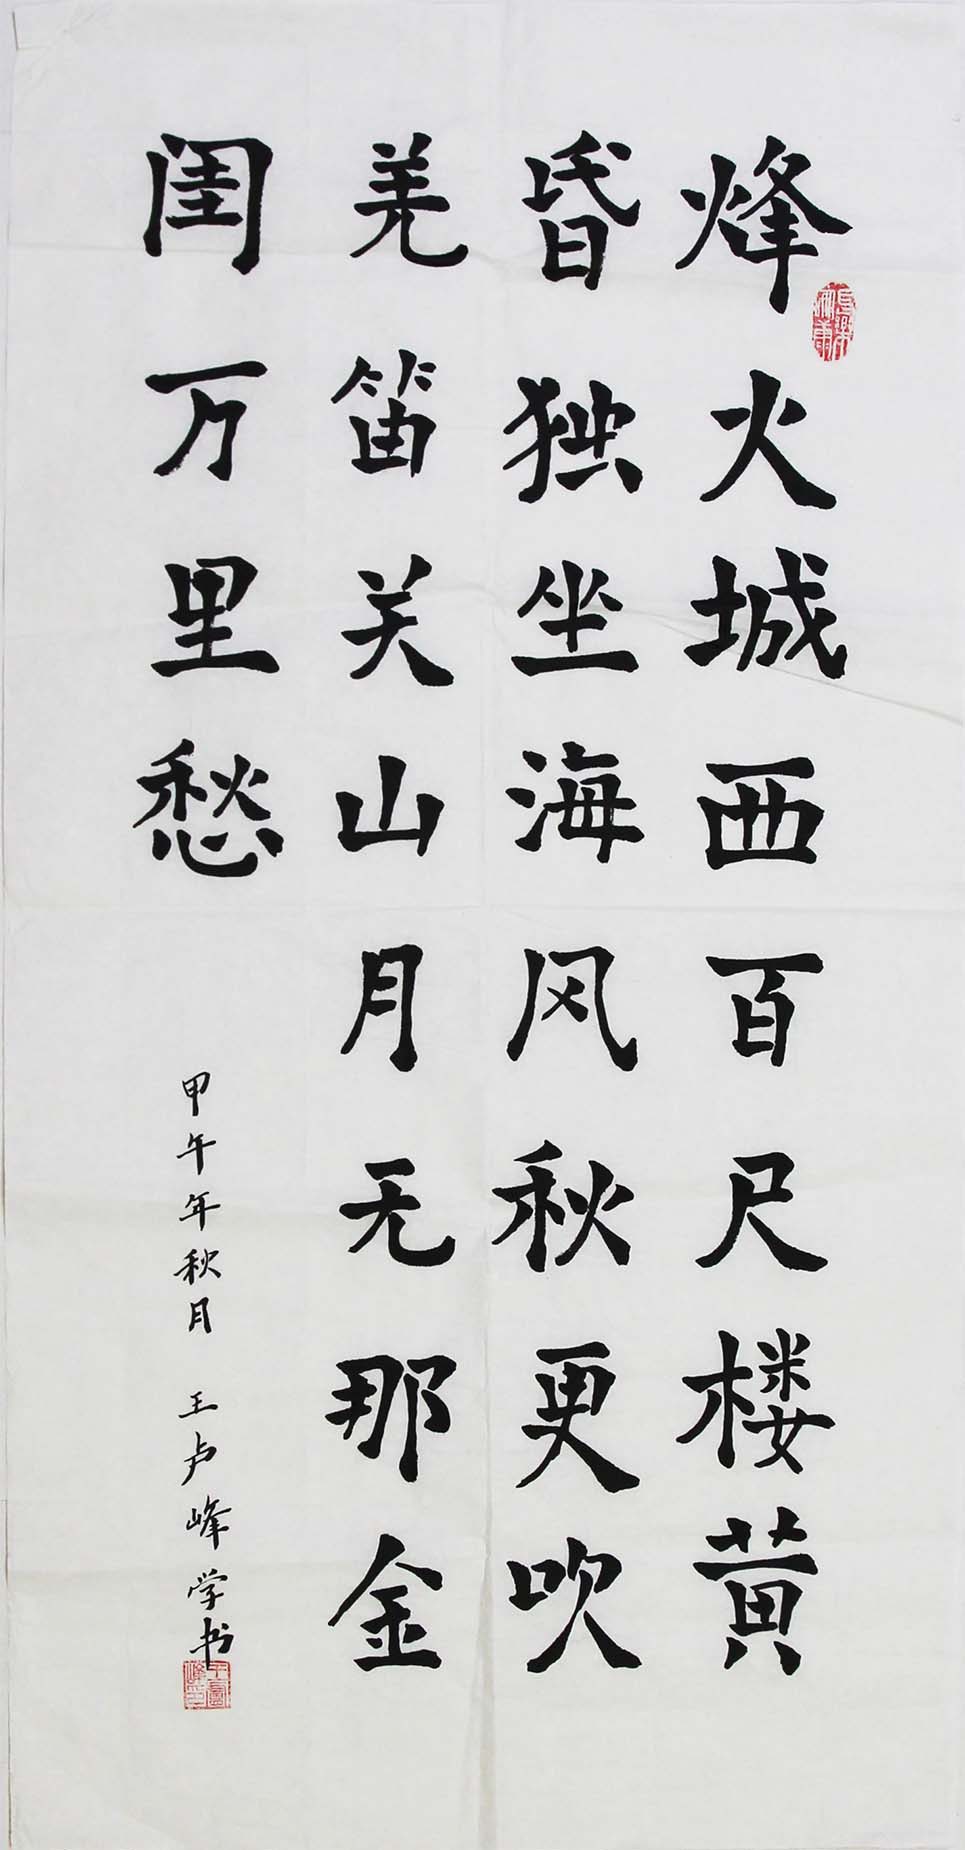 烽火城西百尺楼黄
昏独坐海风秋更吹
羌笛关山月无那金
闺万里愁
甲午年秋月 王卢峰学书